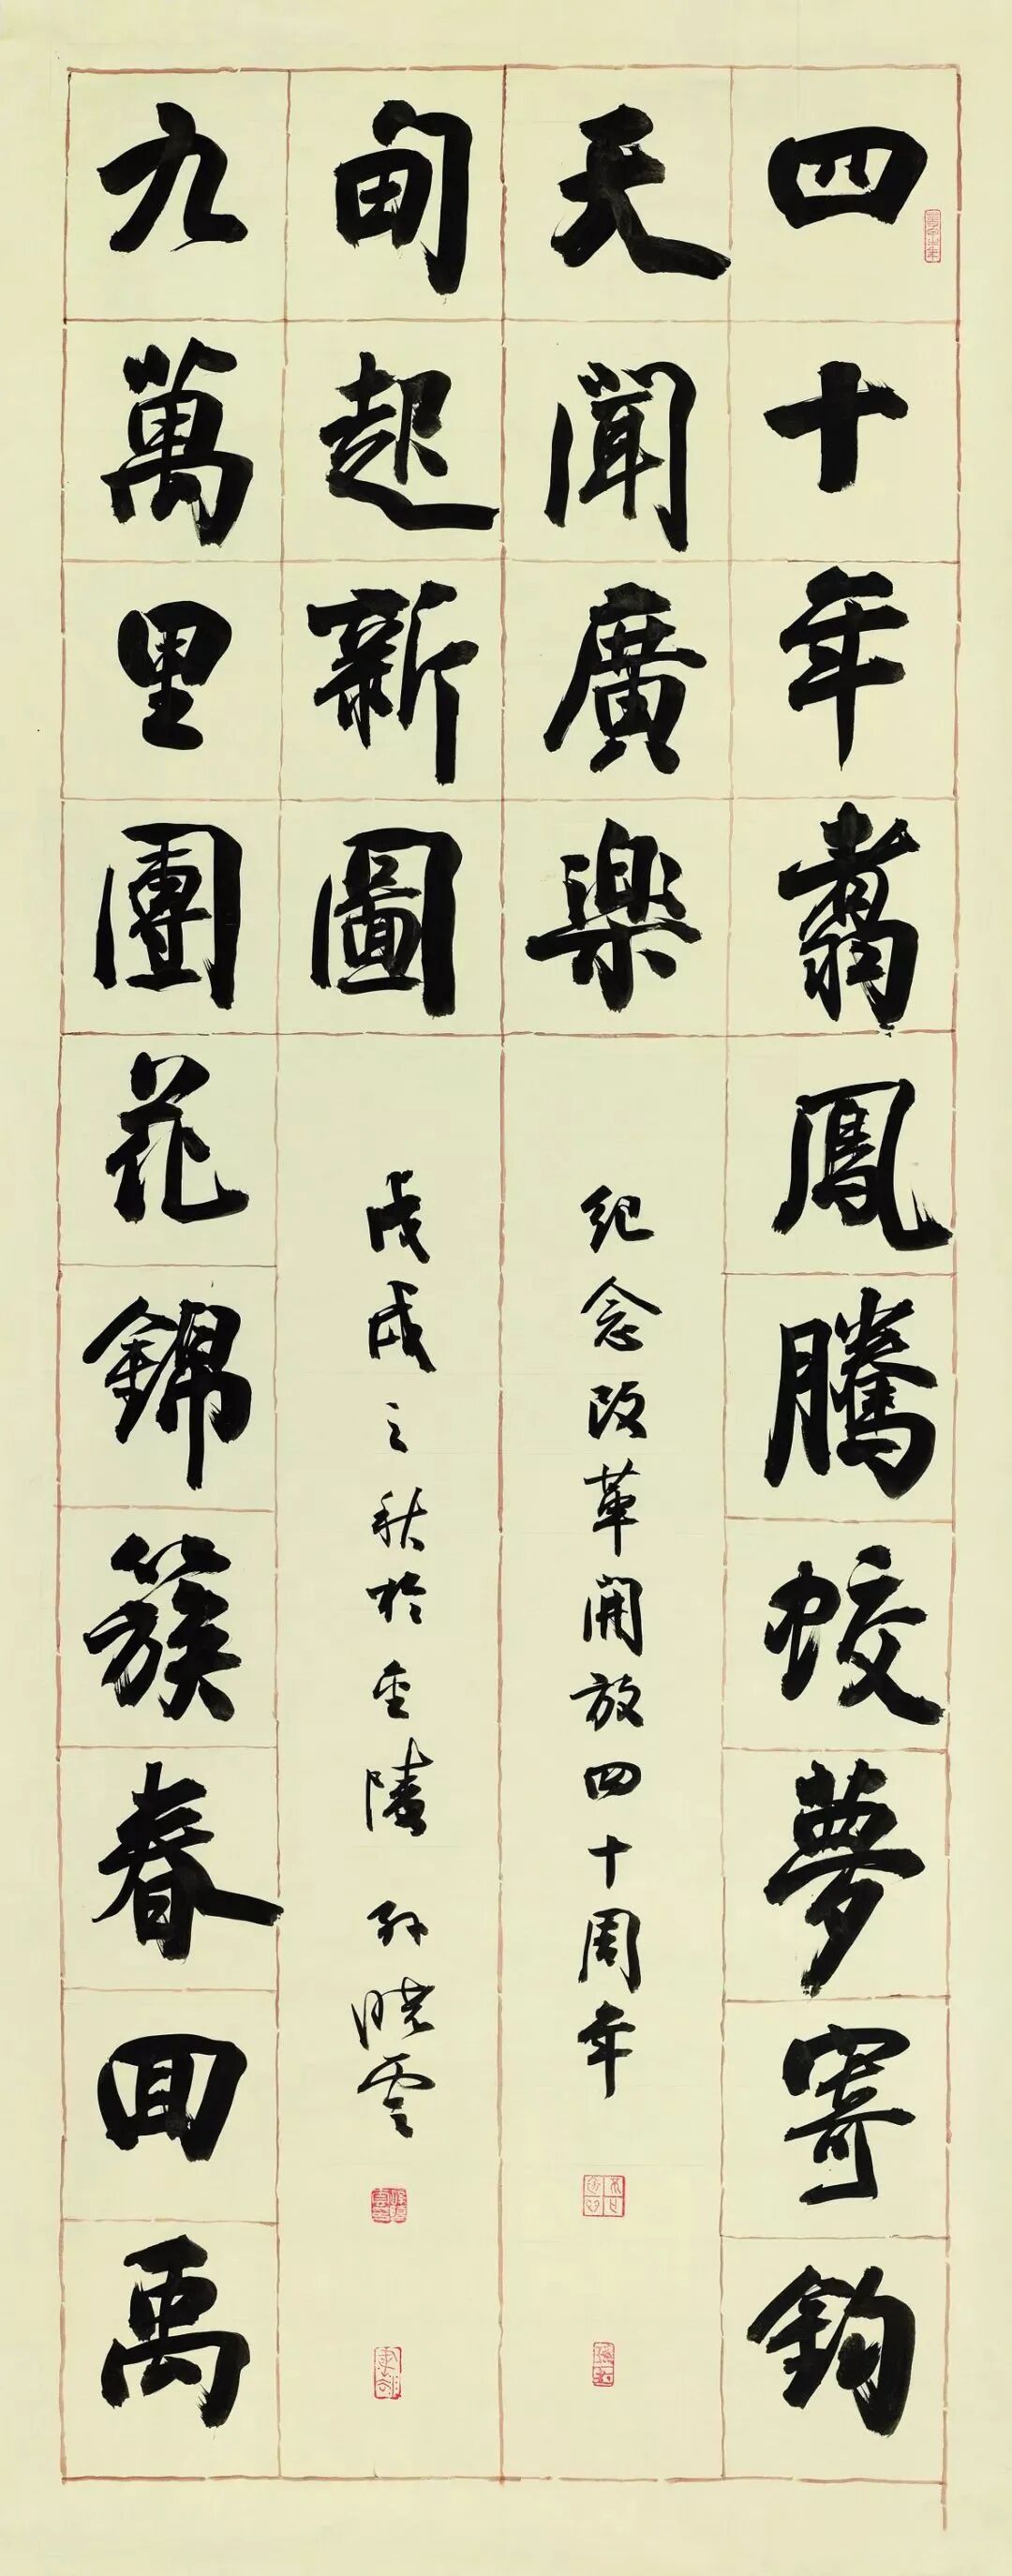 四十年翥鳳騰蛟夢寄鈞
天聞廣樂
紀念改革開放四十周年
九萬里團花錦簇春囬禹
甸起新圖
戊戌之秋於金陵 孫曉雲